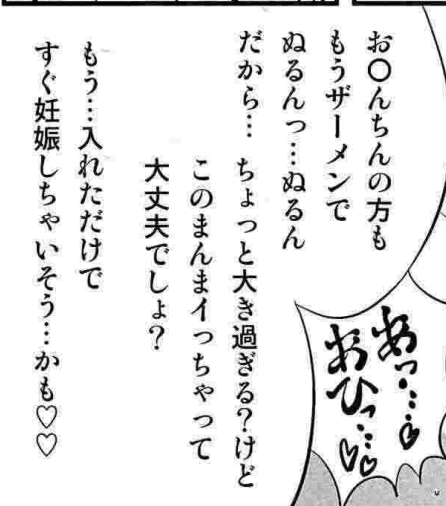 お〇んちんの方も
もうザーメンで
ぬるんっ…ぬるん
だから… ちょっと大き過ぎる?けど
このまんまイっちゃって
大丈夫でしょ?
もう…入れただけで
すぐ妊娠しちゃいそう…かも♡♡
あっ…♡
おひっ…♡♡